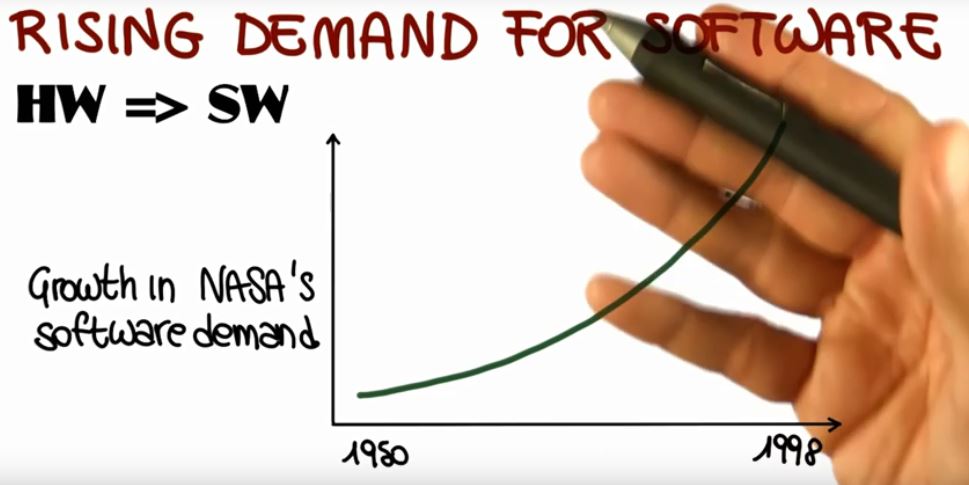 RISING DEMAND FOR SOFTWARE
HW => SW
Growth in NASA's
software demand
1950
1998